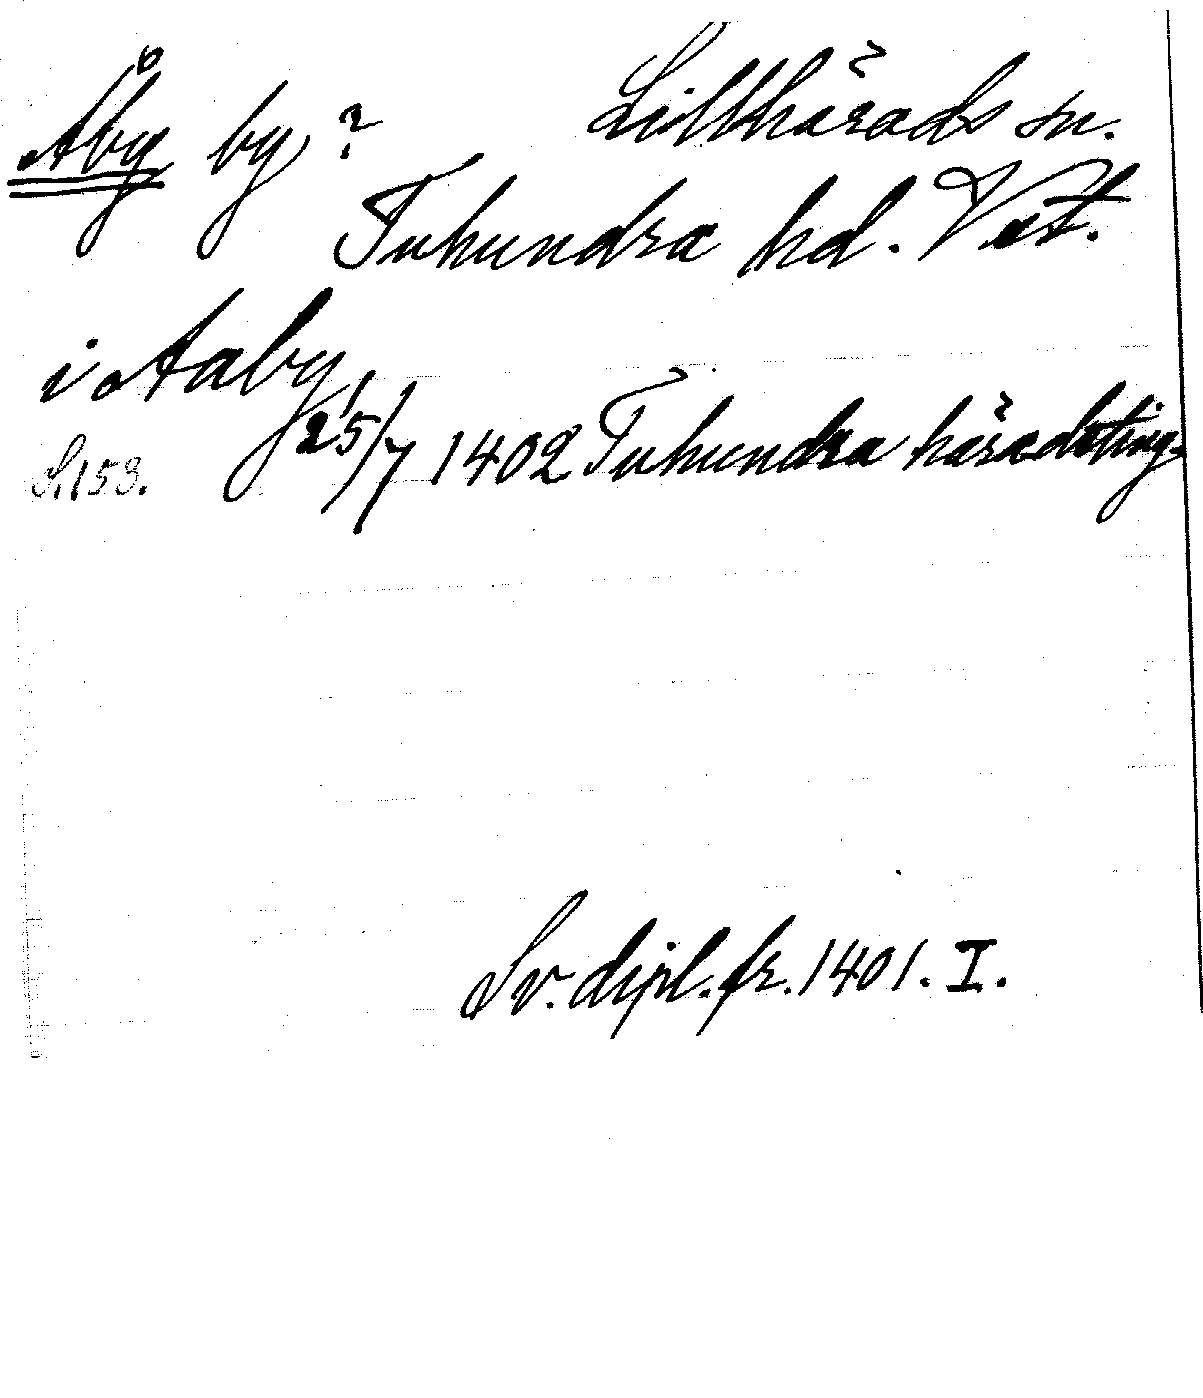 Åby by? Lillhärads sn.
Tuhundra hd. Vst.
i Aaby
S.158. 25/7 1402 Tuhundra häradsting.
Sv. dipl. fr. 1401. I.